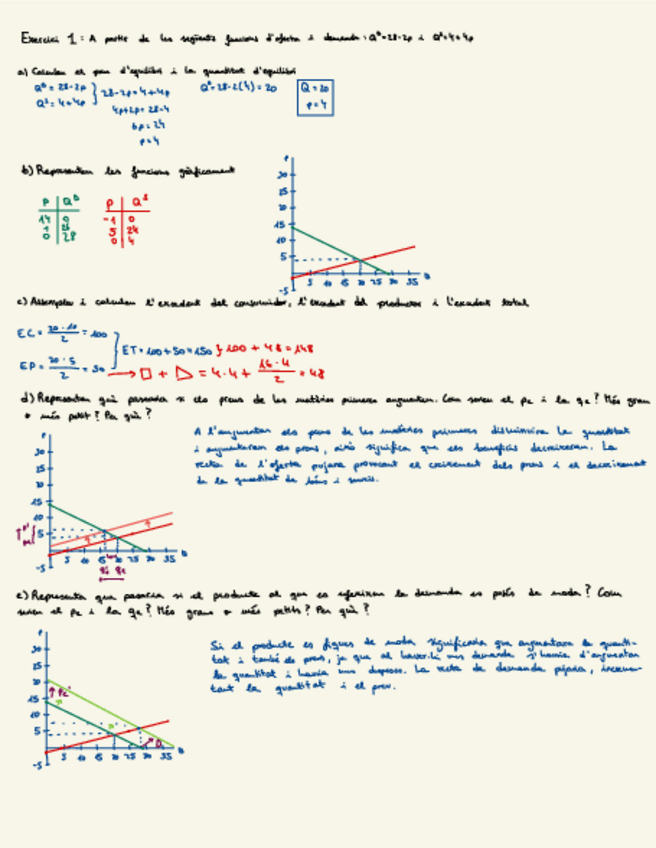 Exercici 1: A partir de les següents funcions d'oferta i demanda: Qᴰ=28-2p i Qˢ=4+4p
a) Calculeu el preu d'equilibri i la quantitat d'equilibri
Qᴰ = 28-2p
Qˢ = 4+4p
28-2p=4+4p
4p+2p=28-4
6p=24
p=4
Qᴰ=28-2(4)=20
Q=20
p=4
b) Representeu les funcions gràficament
P Qᴰ
14 0
1 26
0 28
P Qˢ
-1 0
5 24
0 4
P
30
25
20
15
10
5
-5
5 10 15 20 25 30 35 Q
c) Assenyaleu i calculeu l'excedent del consumidor, l'excedent del productor i l'excedent total
EC = 20·10/2 = 100
EP = 20·5/2 = 50
ET=100+50=150
100 + 48 = 148
□ + ▷ = 4·4 + 16·4/2 = 48
d) Representeu què passaria si els preus de les matèries primeres augmenten. Com seran el pe i la qe? Més gran
o més petit? Per què?
A l'augmentar els preus de les matèries primeres disminuiria la quantitat
i augmentaran els preus, això significa que els beneficis decreixeran. La
recta de l'oferta pujara provocant el creixement dels preus i el decreixement
de la quantitat de béns i serveis.
P
30
25
20
15
10
5
-5
5 10 15 20 25 30 35 Q
e) Representa que passaria si el producte al que es refereixen la demanda es posés de moda? Com
seran el pe i la qe? Més grans o més petits? Per què?
Si el producte es fiques de moda significaria que augmentara la quanti-
tat i també els preus, ja que al haver-hi més demanda s'hauria d'augmentar
la quantitat i hauria més despesa. La recta de demanda pujaria, incremen-
tant la quantitat i el preu.
P
30
25
20
15
10
5
-5
5 10 15 20 25 30 35 Q